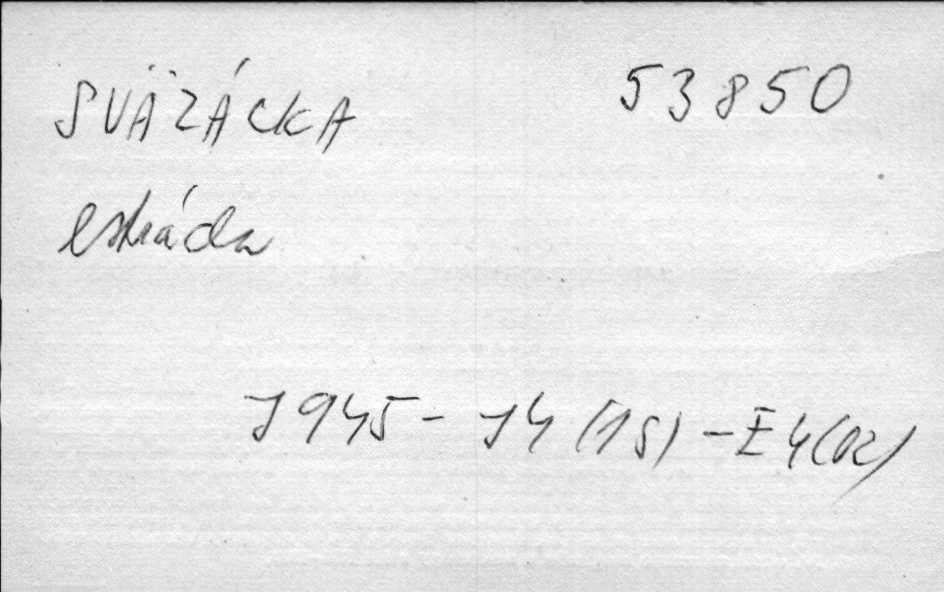 SVÄZÁCKA 53850
estráda
1945 - 14 (15) - I 4 (02)